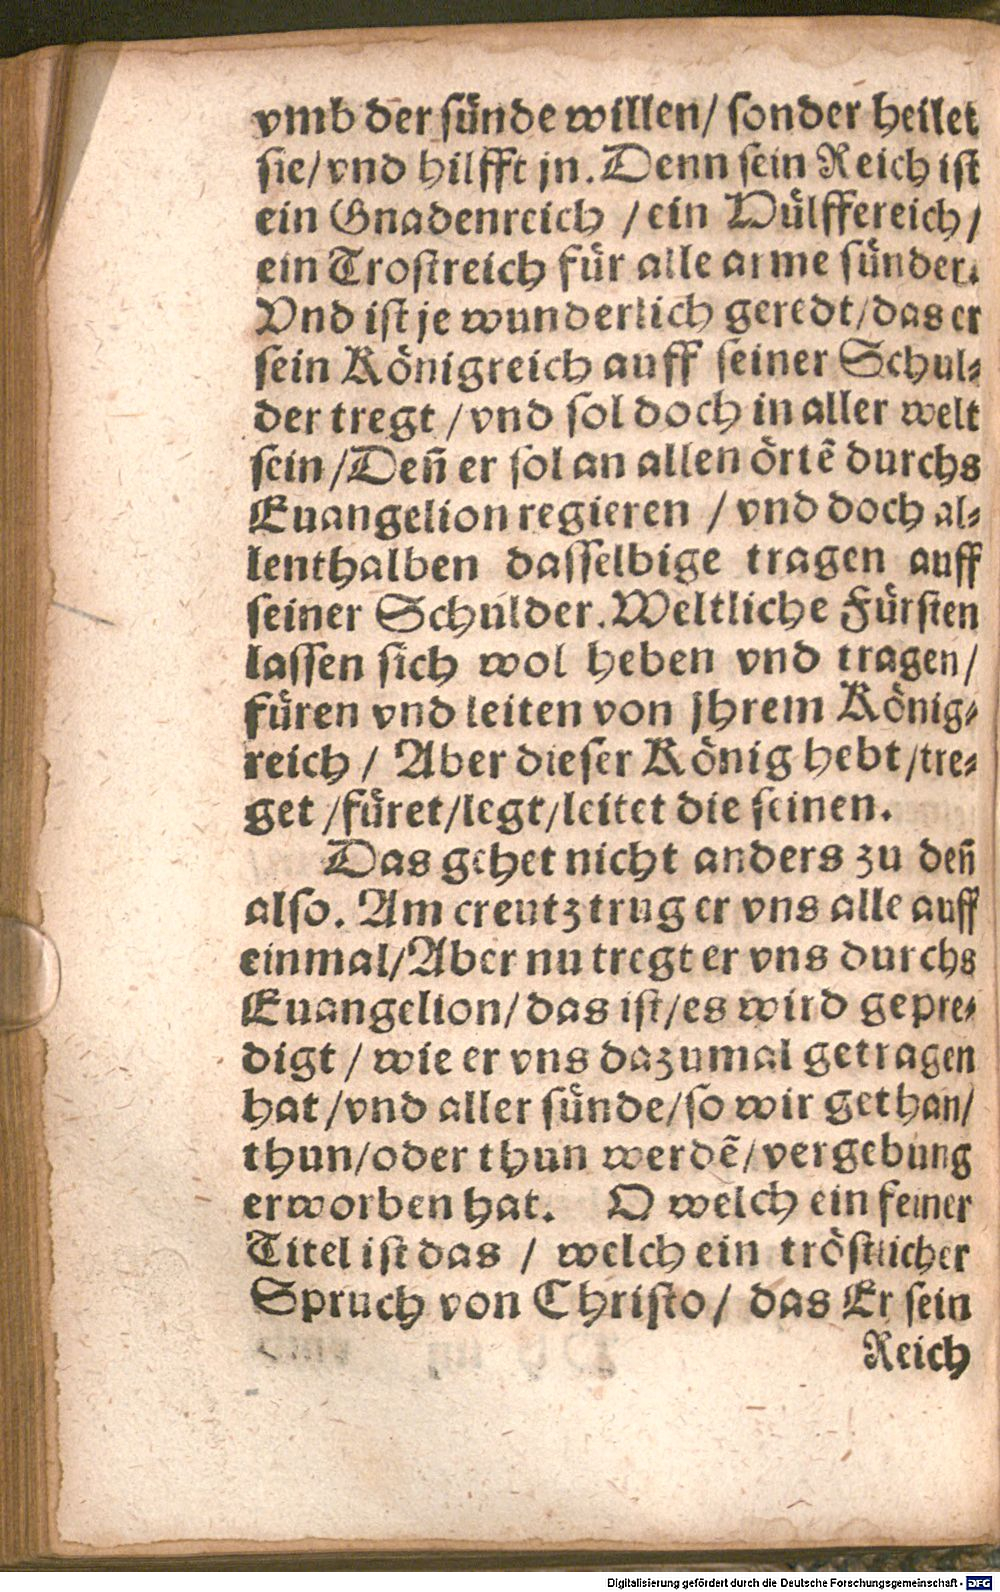 vmb der sünde willen/ sonder heilet
sie/vnd hilfft jn. Denn sein Reich ist
ein Gnadenreich /ein Hülffereich/
ein Trostreich für alle arme sünder.
Vnd ist je wunderlich geredt/das er
sein Königreich auff seiner Schul⸗
der tregt /vnd sol doch in aller welt
sein/Deñ er sol an allen örtẽ durchs
Euangelion regieren / vnd doch al⸗
lenthalben dasselbige tragen auff
seiner Schulder. Weltliche Fürsten
lassen sich wol heben vnd tragen/
füren vnd leiten von jhrem König⸗
reich / Aber dieser König hebt/tre⸗
get /füret/legt/leitet die seinen.
Das gehet nicht anders zu deñ
also. Am creutz trug er vns alle auff
einmal/Aber nu tregt er vns durchs
Euangelion/das ist/es wird gepre⸗
digt / wie er vns dazumal getragen
hat/vnd aller sünde/so wir gethan/
thun/oder thun werdẽ/vergebung
erworben hat. O welch ein feiner
Titel ist das / welch ein tröstlicher
Spruch von Christo/ das Er sein
Reich
Digitalisierung gefördert durch die Deutsche Forschungsgemeinschaft - DFG